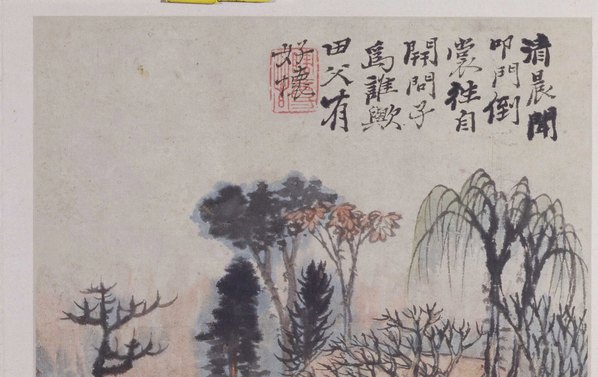 清晨聞
叩門倒
裳徃自
開問子
爲誰歟
田父有
好懷